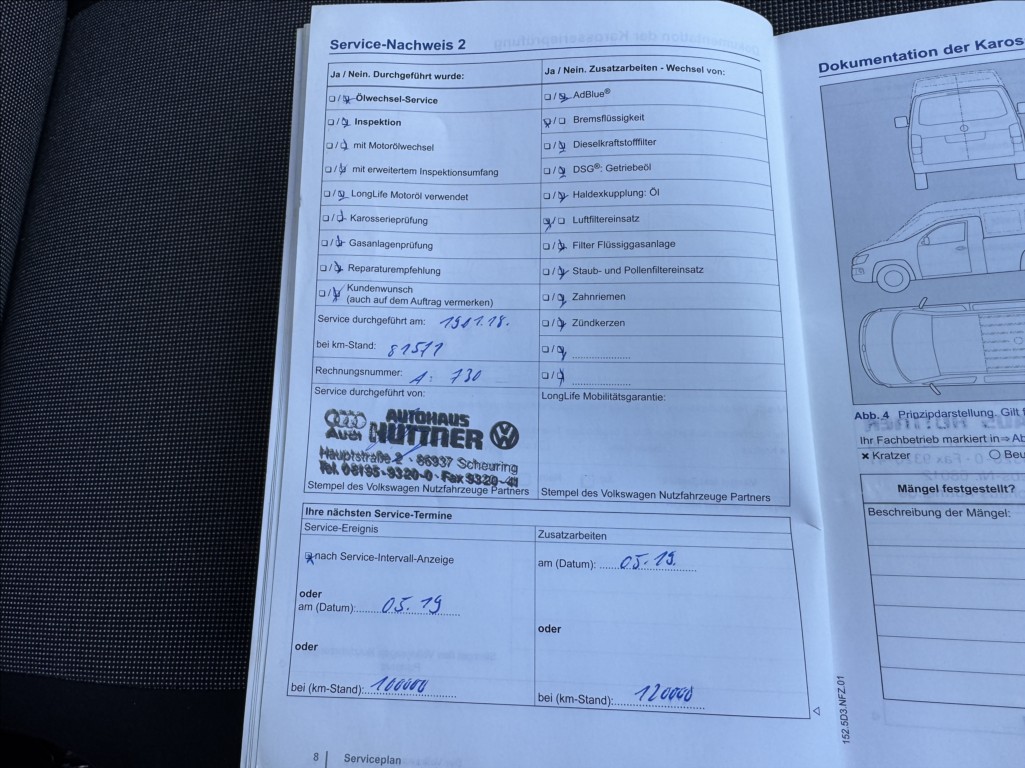 Service-Nachweis 2
Ja / Nein. Durchgeführt wurde:
Ölwechsel-Service
Inspektion
mit Motorölwechsel
mit erweitertem Inspektionsumfang
LongLife Motoröl verwendet
Karosserieprüfung
Gasanlagenprüfung
Reparaturempfehlung
Kundenwunsch
(auch auf dem Auftrag vermerken)
Service durchgeführt am:
bei km-Stand: 81511
Rechnungsnummer: A: 730
Service durchgeführt von:
AUTOHAUS
Audi HÜTTNER
Hauptstraße 2 · 86937 Scheuring
Tel. 08195-9320-0 · Fax 9320-41
Stempel des Volkswagen Nutzfahrzeuge Partners
Ja / Nein. Zusatzarbeiten - Wechsel von:
AdBlue®
Bremsflüssigkeit
Dieselkraftstofffilter
DSG®: Getriebeöl
Haldexkupplung: Öl
Luftfiltereinsatz
Filter Flüssiggasanlage
Staub- und Pollenfiltereinsatz
Zahnriemen
Zündkerzen
LongLife Mobilitätsgarantie:
Stempel des Volkswagen Nutzfahrzeuge Partners
Ihre nächsten Service-Termine
Service-Ereignis
nach Service-Intervall-Anzeige
oder
am (Datum): 05.19
oder
bei (km-Stand): 100000
Zusatzarbeiten
am (Datum): 05.19.
oder
bei (km-Stand): 120000
8 | Serviceplan
Dokumentation der Karos
Abb. 4 Prinzipdarstellung. Gilt f
Ihr Fachbetrieb markiert in ⇒ Ab
× Kratzer ○ Beu
Mängel festgestellt?
Beschreibung der Mängel:
152.5D3.NFZ.01